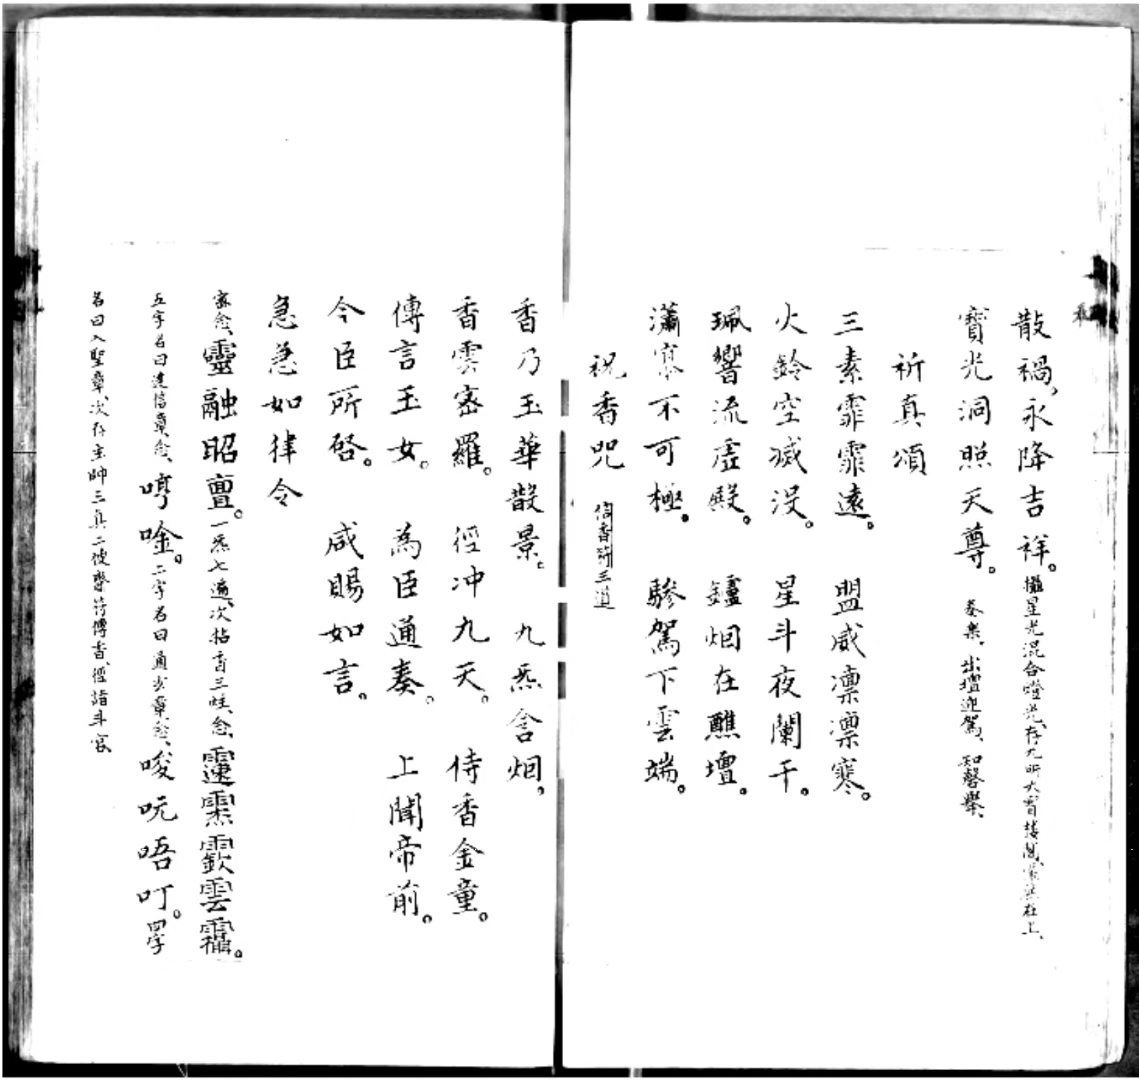 散禍、永降吉祥。攝星光混合燈光、存九所大雷接閣、在上、
寶光洞照天尊。奏樂、出壇迎駕、知磬舉、
祈真頌
三素霏霏遠。盟威凛凛寒。
火鈴空滅沒。星斗夜闌干。
珮響流虛殿。鑪烟在醮壇。
瀟寥不可極。驂駕下雲端。
祝香咒 三道
香乃玉華散景。九炁含烟。
香雲密羅。徑冲九天。侍香金童。
傳言玉女。為臣通奏。上聞帝前。
今臣所啓。咸賜如言。
急急如律令
密念、靈融昭亶。一炁七遍、次拈香三炷、念、
五字名曰達信章、念、哼唫。二字名曰通玄章、念、唆吭唔叮。四字
名曰入聖章、次存主帥三真二使賫符傳香、徑詣斗宮、